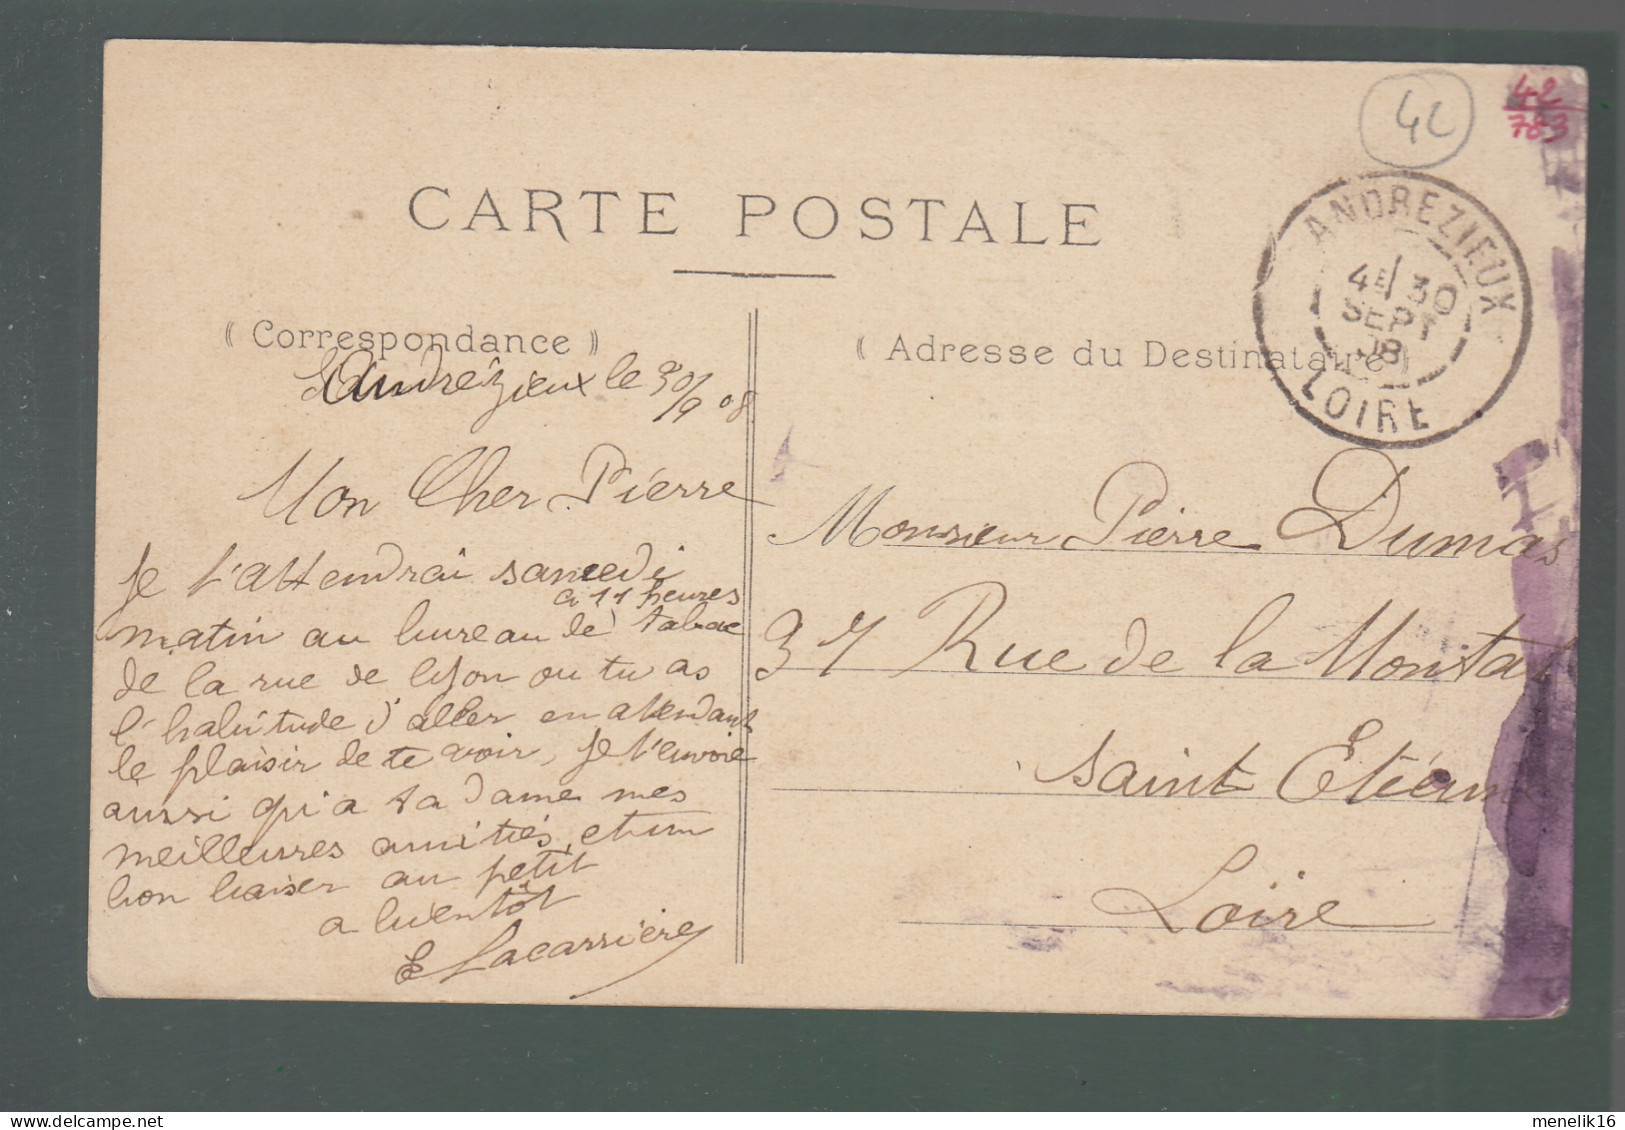 42
42
783
CARTE POSTALE
ANDREZIEUX
4E 30
SEPT
08
LOIRE
(( Correspondance ))
(( Adresse du Destinataire ))
Andrézieux le 30/9 08
Mon Cher Pierre
Je t'attendrai samedi
a 11 heures
matin au bureau de tabac
de la rue de lyon ou tu as
l'habitude d'aller en attendant
le plaisir de te voir, je t'envoie
aussi qu'a ta dame mes
meilleures amitiés, et un
bon baiser au petit
a bientôt
E Lacarrière
Monsieur Pierre Dumas
37 Rue de la Montat
Saint Etienne
Loire
menelik16